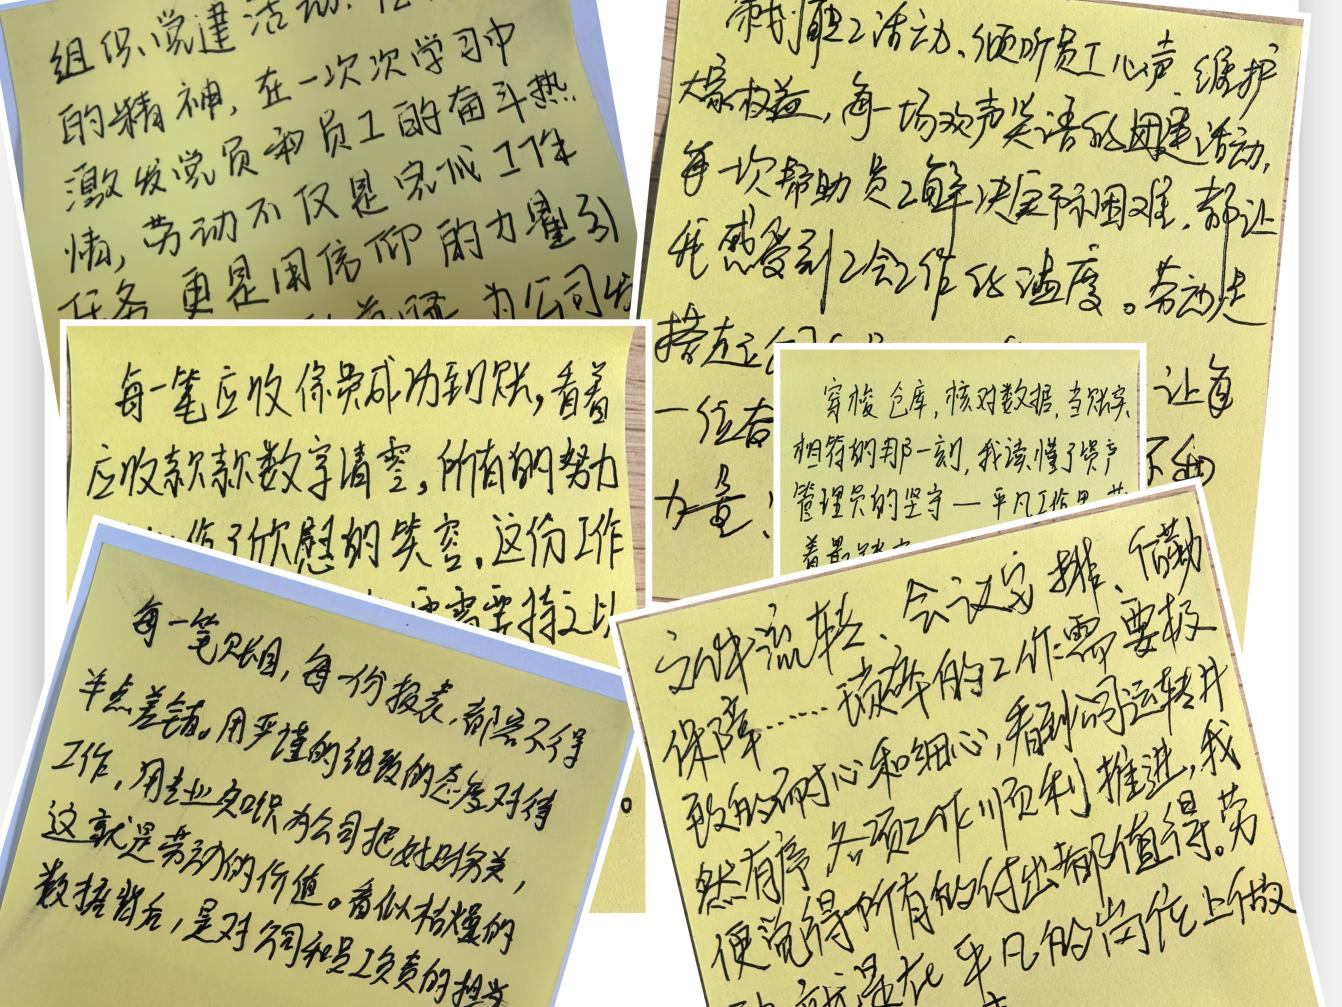 组织党建活动,
的精神,在一次次学习中
激发党员和员工的奋斗热
情,劳动不仅是完成工作
任务 更是用信仰的力量引
为公司
职工活动、倾听员工心声、维护
大家权益,每一场欢声笑语的团建活动,
每一次帮助员工解决实际困难,都让
我感受到工会工作的温度。劳动是
搭在公司
让每
一位
力量!
每一笔应收保费成功到账,看着
应收款款数字清零,所有的努力
作了欣慰的笑容,这份工作
需要持之以
。
穿梭仓库,核对数据,当账实
相符的那一刻,我读懂了资产
管理员的坚守—平凡工作里
着最
每一笔账目,每一份报表,都容不得
半点差错。用严谨的细致的态度对待
工作,用专业知识为公司把好财务关,
这就是劳动的价值。看似枯燥的
数据背后,是对公司和员工负责的担当
文件流转、会议安排、后勤
保障……琐碎的工作需要极
致的耐心和细心,看到公司运转井
然有序 各项工作顺利推进,我
便觉得所有的付出都值得。劳
动就是在平凡的岗位上做